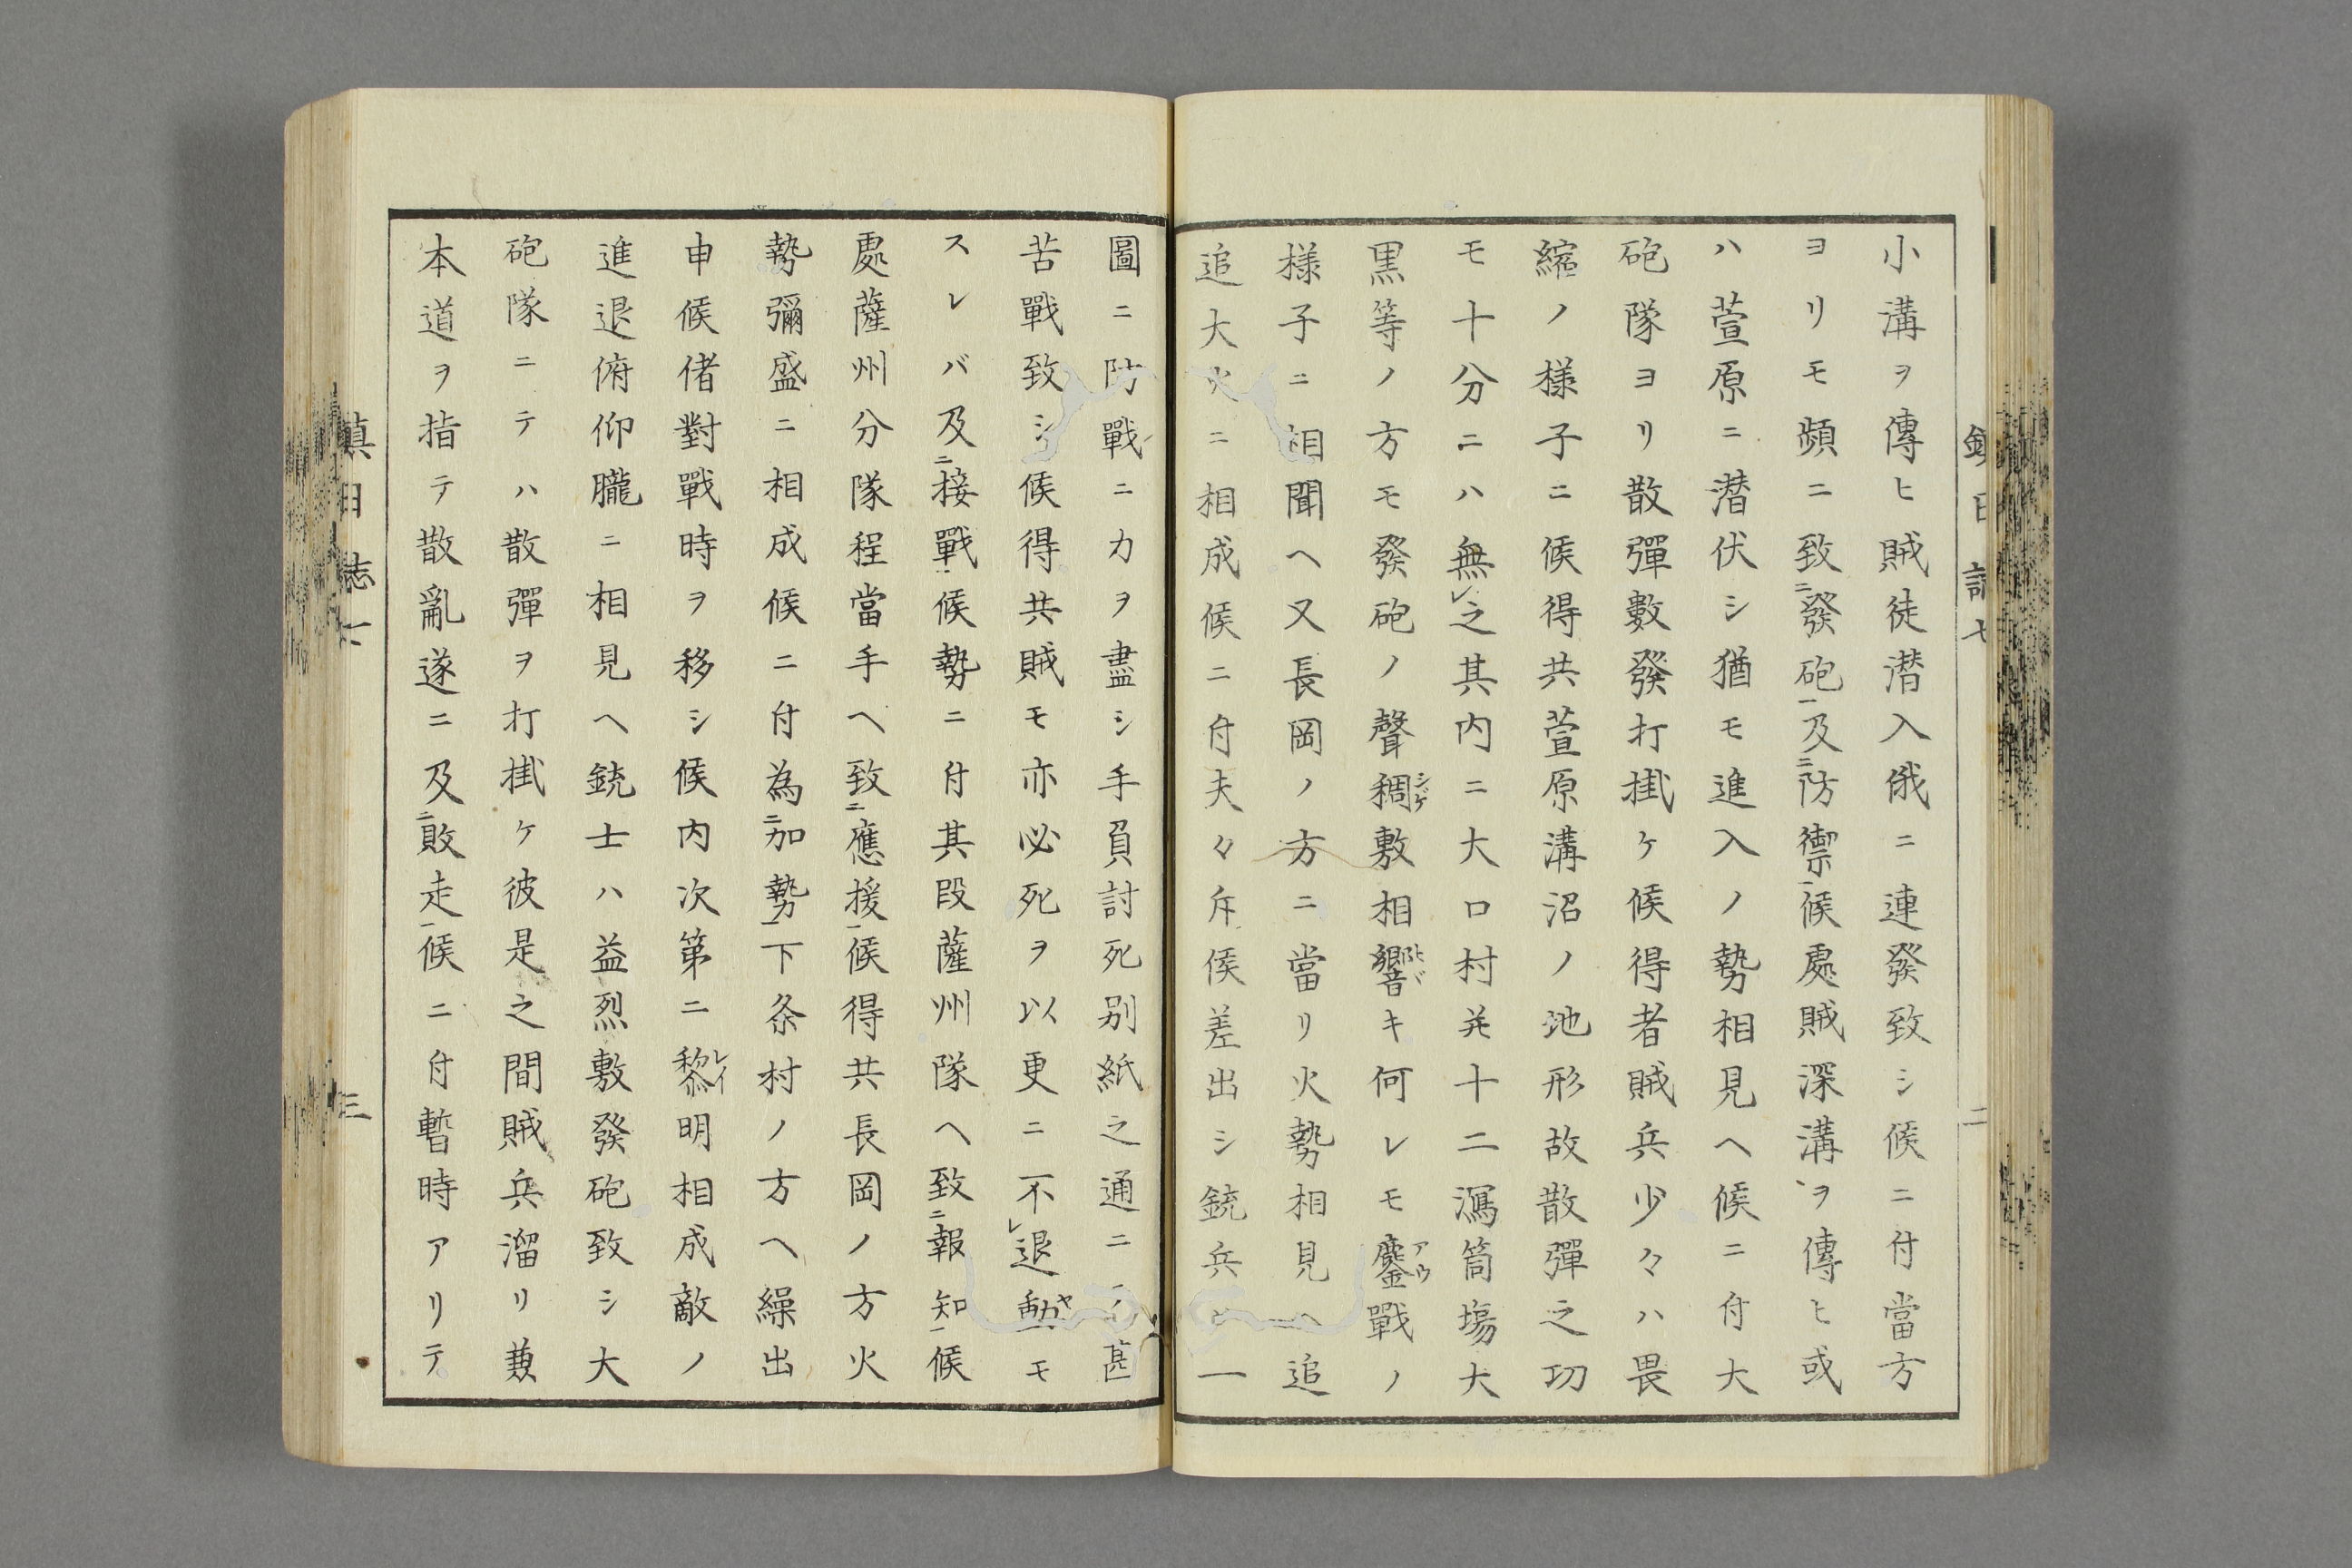 小溝ヲ傳ヒ賊徒潜入俄ニ連發致シ候ニ付當方
ヨリモ頻ニ致二發砲一及二防禦一候處賊深溝ヲ傳ヒ或
ハ萱原ニ潜伏シ猶モ進入ノ勢相見ヘ候ニ付大
砲隊ヨリ散彈數發打掛ケ候得者賊兵少々ハ畏
縮ノ様子ニ候得共萱原溝沼ノ地形故散彈之功
モ十分ニハ無レ之其内ニ大口村并十二潟筒塲大
黒等ノ方モ發砲ノ聲稠シゲ敷相響ヒヾキ何レモ鏖アウ戰ノ
様子ニ相聞ヘ又長岡ノ方ニ當リ火勢相見ヘ追
追大火ニ相成候ニ付夫々斥候差出シ銃兵ヒ一
圖ニ防戰ニカヲ盡シ手負討死別紙之通ニテ甚
苦戰致シ候得共賊モ亦必死ヲ以更ニ不レ退動ヤモ
スレバ及二接戰一候勢ニ付其段薩州隊ヘ致二報知一候
處薩州分隊程當手ヘ致二應援一候得共長岡ノ方火
勢彌盛ニ相成候ニ付為二加勢一下条村ノ方ヘ繰出
申候偖對戰時ヲ移シ候内次第ニ黎レイ明相成敵ノ
進退俯仰朧ニ相見ヘ銃士ハ益烈敷發砲致シ大
砲隊ニテハ散彈ヲ打掛ケ彼是之間賊兵溜リ兼
本道ヲ指テ散亂遂ニ及二敗走一候ニ付暫時アリテ
鎮日誌七
二
鎮日誌七
三